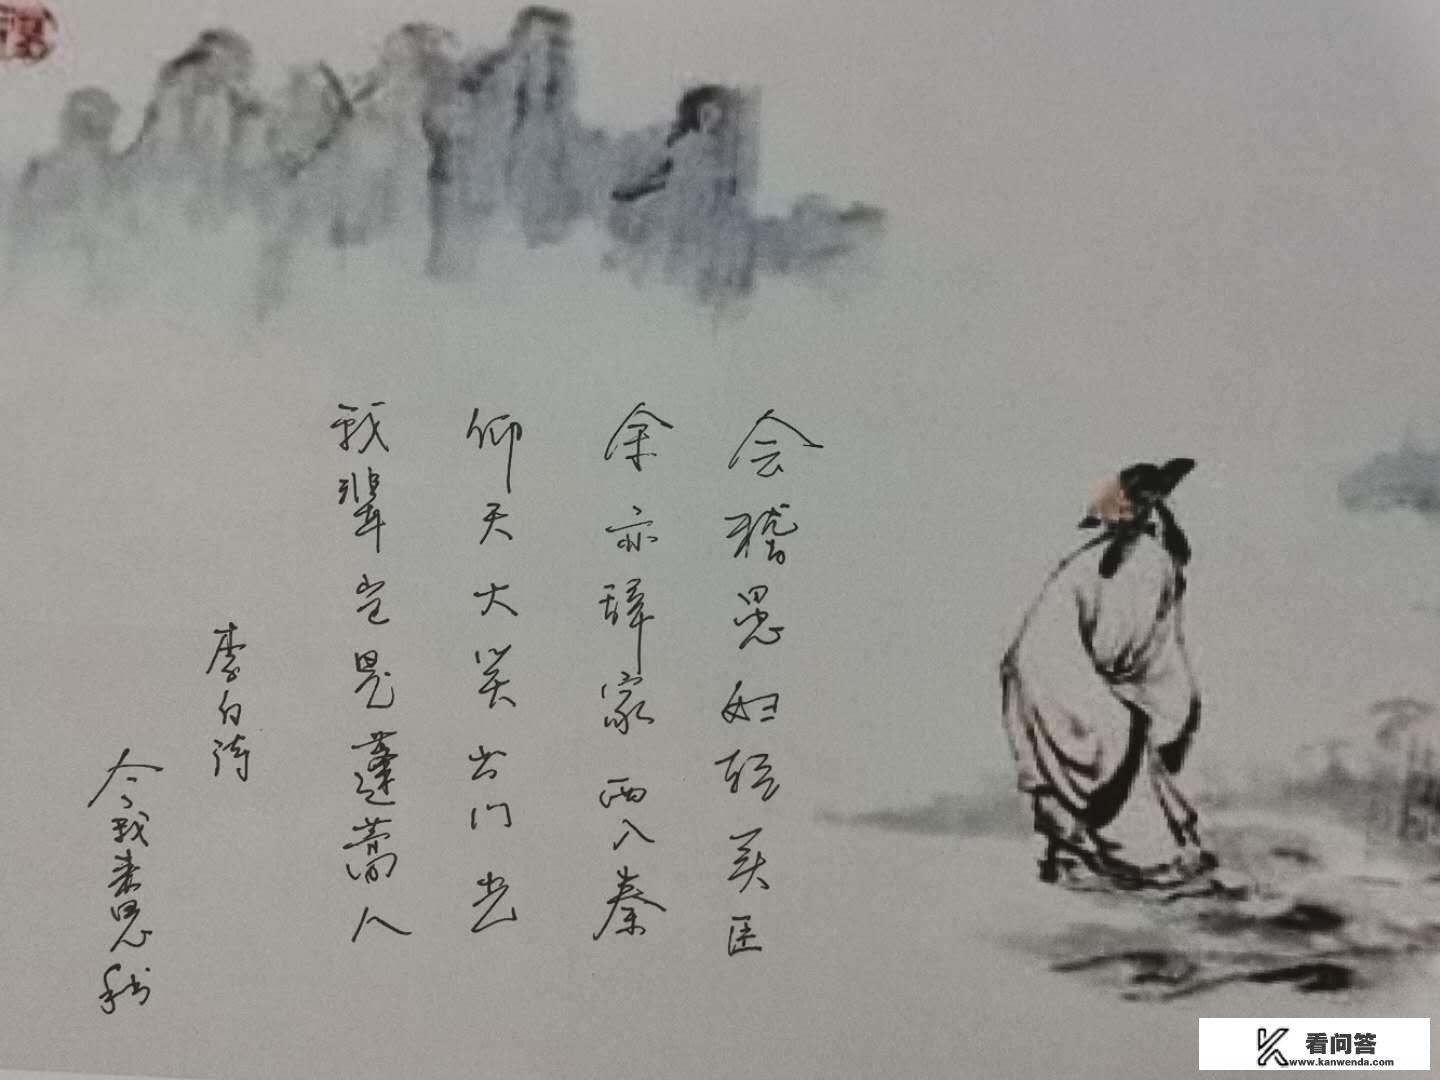 会稽愚妇轻买臣
余亦辞家西入秦
仰天大笑出门去
我辈岂是蓬蒿人
李白诗
看问答
www.kanwenda.com